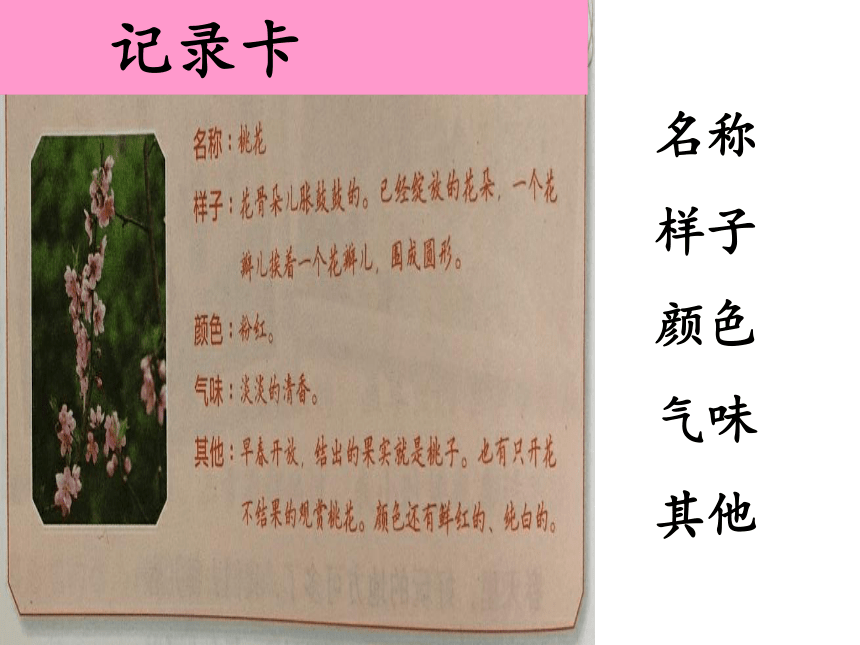 记录卡
名称：桃花
样子：花骨朵儿胀鼓鼓的。已经绽放的花朵，一个花
瓣儿挨着一个花瓣儿，围成圆形。
颜色：粉红。
气味：淡淡的清香。
其他：早春开放，结出的果实就是桃子。也有只开花
不结果的观赏桃花。颜色还有鲜红的、纯白的。
名称
样子
颜色
气味
其他